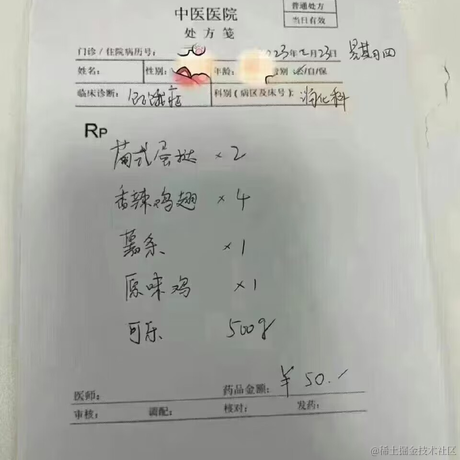 中医医院
处方笺
普通处方
当日有效
门诊/住院病历号: 2023年2月23日 星期四
姓名: 性别: 年龄: 费别:医/自/保
临床诊断: 饥饿症 科别(病区及床号): 消化科
Rp
葡式蛋挞 × 2
香辣鸡翅 × 4
薯条 × 1
原味鸡 × 1
可乐 500g
医师: 药品金额: ¥50.-
审核: 调配: 核对: 发药:
@稀土掘金技术社区